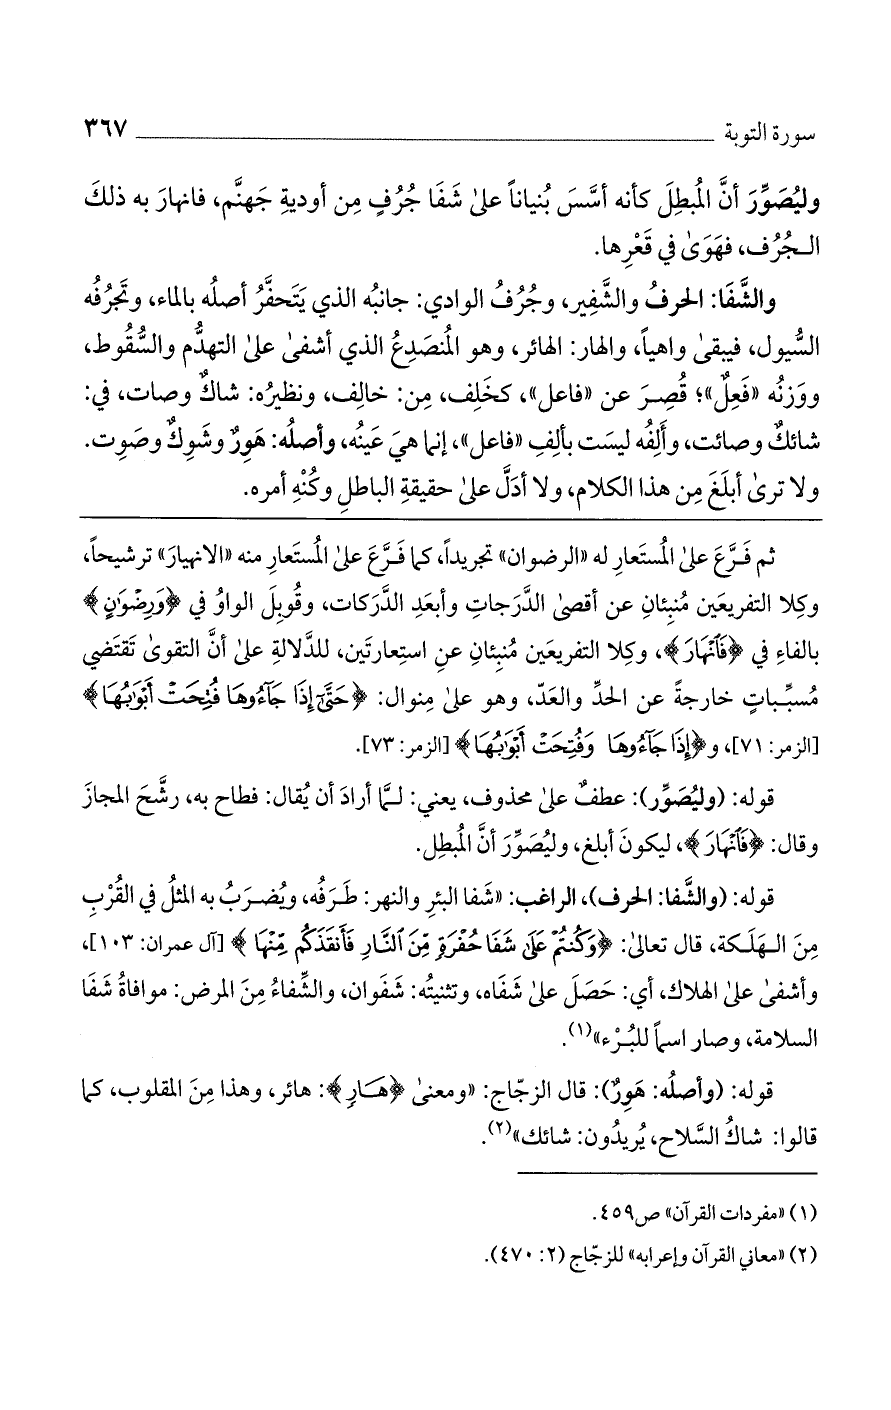 سورة التوبة ٣٦٧
وليُصَوِّرَ أنَّ المُبطِلَ كأنه أسَّسَ بُنياناً علىٰ شَفَا جُرُفٍ مِن أوديةِ جَهنَّم، فانهارَ به ذلكَ
الـجُرُف، فهَوَىٰ في قَعْرِها.
والشَّفَا: الحرفُ والشَّفِير، وجُرُفُ الوادي: جانبُه الذي يَتَحفَّرُ أصلُه بالماء، وتَجرُفُه
السُّيول، فيبقىٰ واهياً، والهار: الهائر، وهو المُنصَدِعُ الذي أشفىٰ علىٰ التهدُّم والسُّقُوط،
ووَزنُه «فَعِلٌ»؛ قُصِرَ عن «فاعل»، كخَلِف، مِن: خالِف، ونظيرُه: شاكٌ وصات، في:
شائكٌ وصائت، وأَلِفُه ليسَت بألِفِ «فاعل»، إنما هيَ عَينُه، وأصلُه: هَوِرٌ وشَوِكٌ وصَوِت.
ولا ترىٰ أبلَغَ مِن هذا الكلام، ولا أدَلَّ علىٰ حقيقةِ الباطلِ وكُنْهِ أمره.
ثم فَـرَّعَ علىٰ المُستَعارِ له «الرضوان» تجريداً، كما فَـرَّعَ علىٰ المُستَعارِ منه «الانهيارَ» ترشيحاً،
وكِلا التفريعَين مُنبِئانِ عن أقصىٰ الدَّرَجاتِ وأبعَدِ الدَّرَكات، وقُوبِلَ الواوُ في ﴿وَرِضْوَٰنٍ﴾
بالفاءِ في ﴿فَٱنْهَارَ﴾، وكِلا التفريعَين مُنبِئانِ عنِ استِعارتَين، للدَّلالةِ علىٰ أنَّ التقوىٰ تَقتَضي
مُسبَّباتٍ خارجةً عن الحدِّ والعَدّ، وهو علىٰ مِنوال: ﴿حَتَّىٰٓ إِذَا جَآءُوهَا فُتِحَتْ أَبْوَٰبُهَا﴾
[الزمر: ٧١]، و﴿إِذَا جَآءُوهَا وَفُتِحَتْ أَبْوَٰبُهَا﴾ [الزمر: ٧٣].
قوله: (وليُصَوِّر): عطفٌ علىٰ محذوف، يعني: لـمَّا أرادَ أن يُقال: فطاح به، رشَّحَ المجازَ
وقال: ﴿فَٱنْهَارَ﴾، ليكونَ أبلغ، وليُصَوِّرَ أنَّ المُبطِل.
قوله: (والشَّفا: الحرف)، الراغب: «شَفا البئرِ والنهر: طَـرَفُه، ويُضـرَبُ به المثلُ في القُرْبِ
مِنَ الـهَلَـكة، قال تعالىٰ: ﴿وَكُنتُمْ عَلَىٰ شَفَا حُفْرَةٍ مِّنَ ٱلنَّارِ فَأَنقَذَكُم مِّنْهَا﴾ [آل عمران: ١٠٣]،
وأشفىٰ علىٰ الهلاك، أي: حَصَلَ علىٰ شَفَاه، وتثنيتُه: شَفَوان، والشِّفاءُ مِنَ المرض: موافاةُ شَفَا
السلامة، وصار اسماً للبُـرْء»(١).
قوله: (وأصلُه: هَوِرٌ): قال الزجّاج: «ومعنىٰ ﴿هَارٍ﴾: هائر، وهذا مِنَ المقلوب، كما
قالوا: شاكُ السَّلاح، يُريدُون: شائك»(٢).
(١) «مفردات القرآن» ص٤٥٩.
(٢) «معاني القرآن وإعرابه» للزجّاج (٢: ٤٧٠).